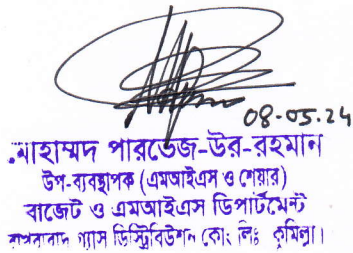 08-05.24
মোহাম্মদ পারভেজ-উর-রহমান
উপ-ব্যবস্থাপক (এমআইএস ও শেয়ার)
বাজেট ও এমআইএস ডিপার্টমেন্ট
বাখরাবাদ গ্যাস ডিস্ট্রিবিউশন কোং লিঃ কুমিল্লা।